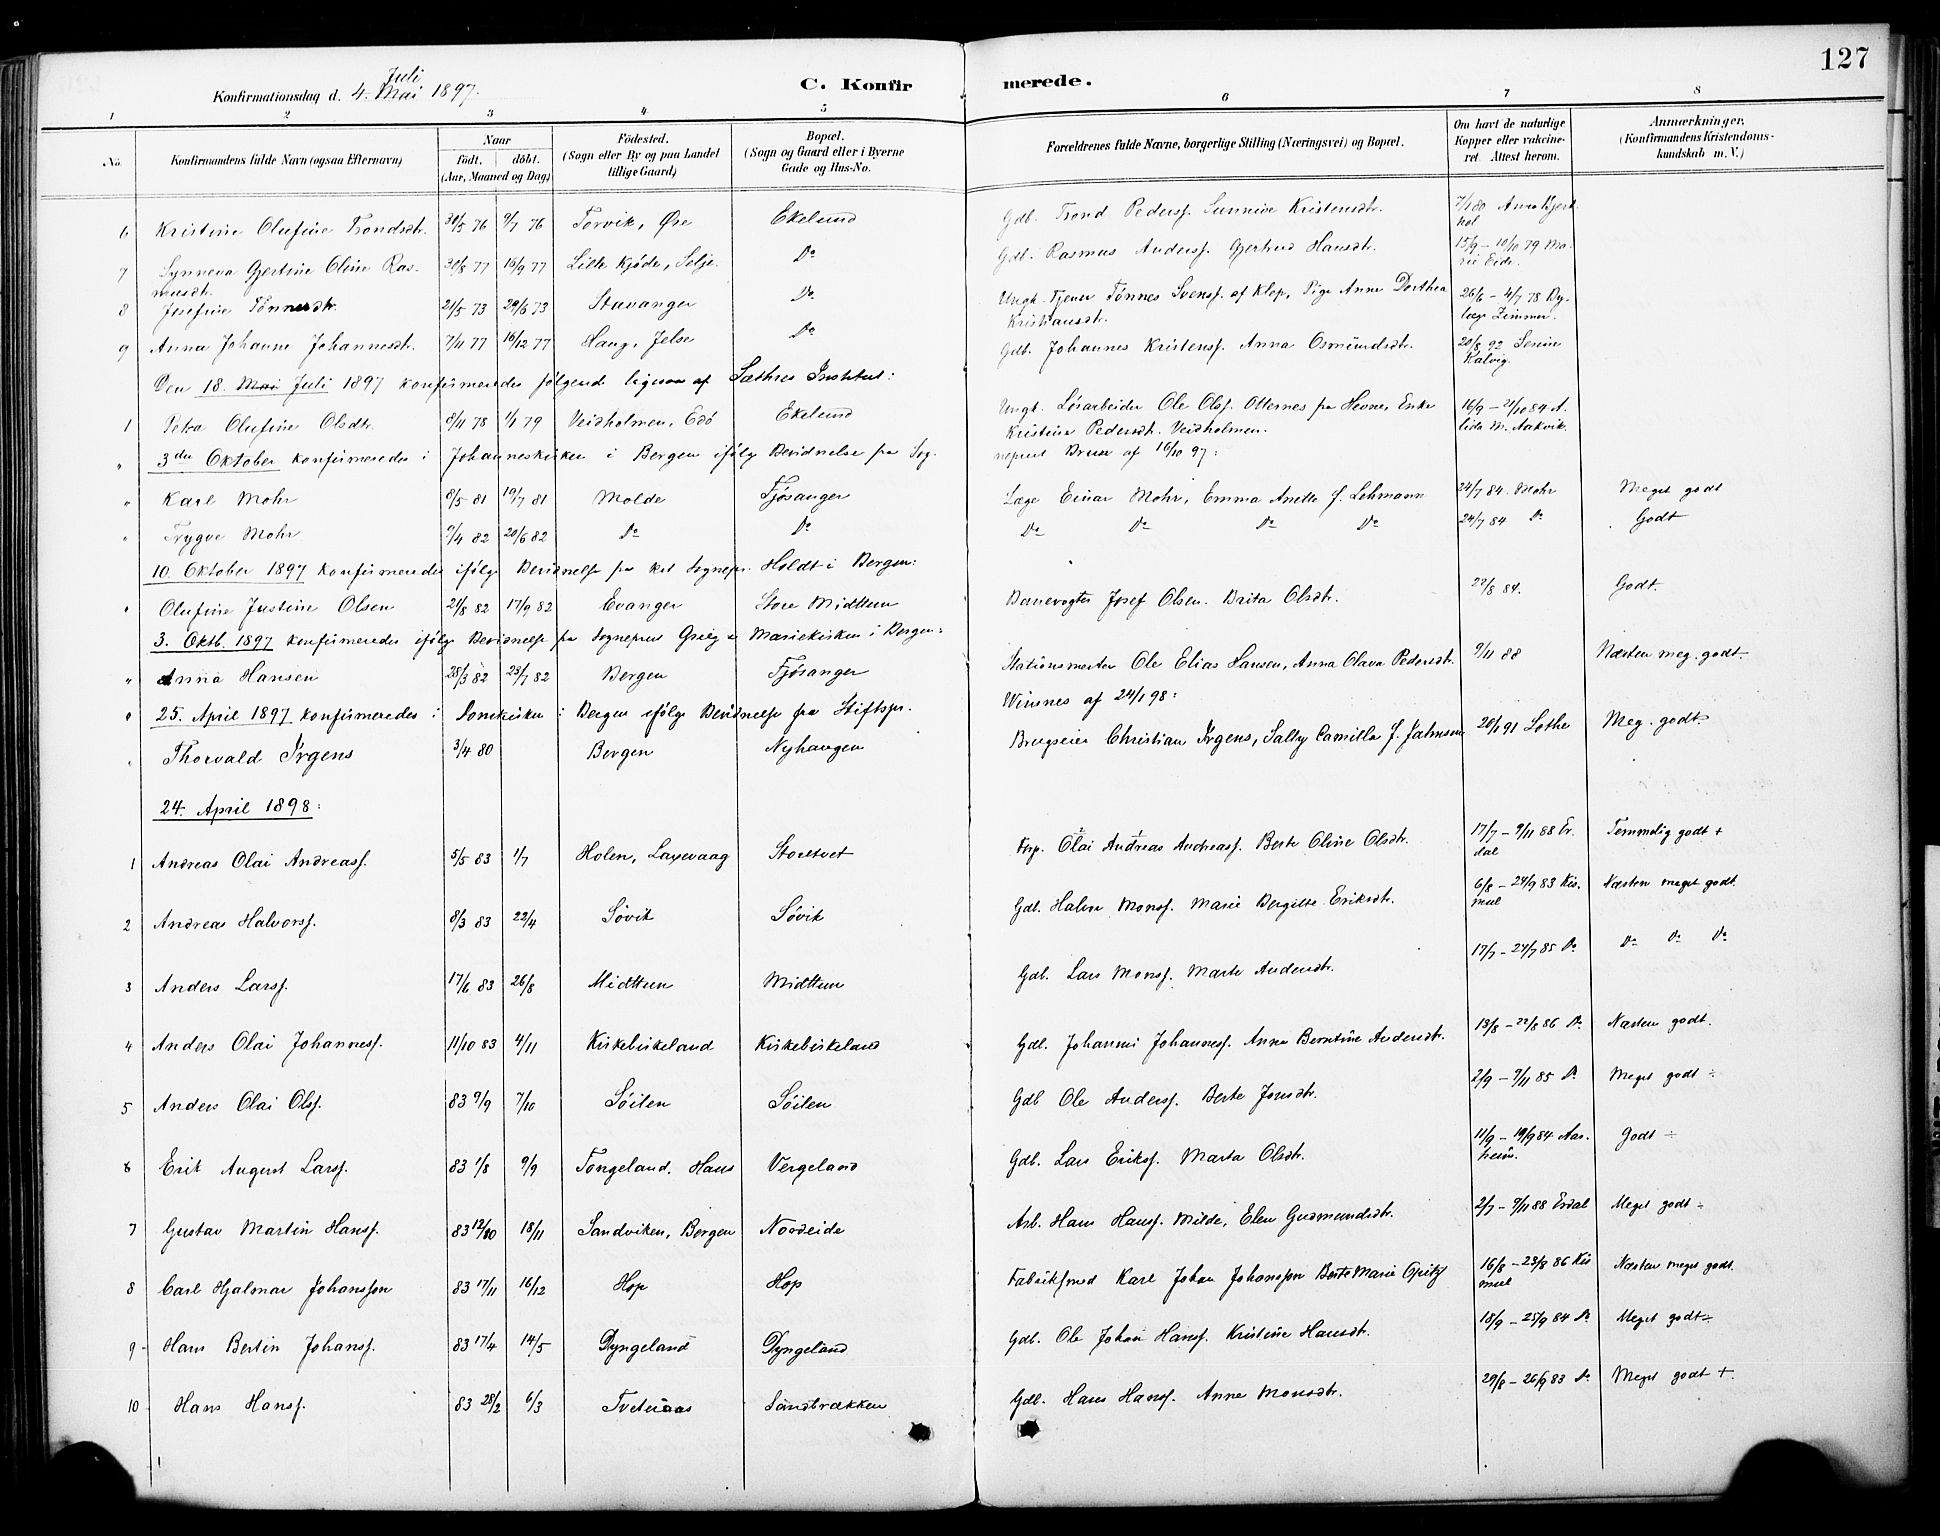 127
Juli
Konfirmationsdag d. 4. Mai 1897.
C. Konfirmerede.
1 2 3 4 5 6 7 8
No. Konfirmandens fulde Navn (ogsaa Efternavn) Naar født. døbt. (Aar, Maaned og Dag) Fødested. (Sogn eller By og paa Landet tillige Gaard) Bopæl. (Sogn og Gaard eller i Byerne Gade og Hus-No. Forældrenes fulde Navne, borgerlige Stilling (Næringsvei) og Bopæl. Om havt de naturlige Kopper eller vakcineret. Attest herom. Anmærkninger. (Konfirmandens Kristendomskundskab m. V.)
6 Kristine Olufine Trondsdtr. 30/5 76 9/7 76 Torvik, Øre Ekelund Gdb. Trond Peders. Sunnive Kristensdtr. 7/1 80
7 Synneva Gjertine Oline Rasmusdtr. 30/8 77 16/9 77 Lille Kjøde, Selje Do Gdb. Rasmus Anders. Gjertrud Hansdtr. 15/9 – 10/10 79 Marie Eide.
8 Josefine Tønnesdtr. 21/5 73 29/6 73 Stavanger Do Ungk. Tjener Tønnes Svens. af Klep, Pige Anne Dorthea Kristiansdtr. 26/6 – 4/7 78 Bylæge Zimmer.
9 Anna Johanne Johannesdtr. 7/11 77 16/12 77 Haug, Jelse Do Gdb. Johannes Kristens. Anna Osmundsdtr. 20/8 92 Serine Kalvig.
Den 18. Mai Juli 1897 konfirmeredes følgende ligesaa af Sæthres Institut:
1 Petra Olufine Olsdtr. 8/11 78 1/1 79 Veidholmen, Edø Ekelund Ungk. Løsarbeider Ole Ols. Otternes fra Hevne, Enke Kristine Pedersdt. Veidholmen. 16/9 – 21/10 84 Alida M. Aakvik.
" 3die Oktober konfirmeredes i Johanneskirken i Bergen ifølge Bevidnelse fra Sogneprest Bruun af 16/10 97:
" Karl Mohr 8/5 81 19/7 81 Molde Fjøsanger Læge Einar Mohr, Emma Anette f. Lehmann 24/7 84. Mohr Meget godt
" Trygve Mohr 9/4 82 20/6 82 Do Do Do Do Do Do 24/7 84 Do Godt
10. Oktober 1897 konfirmeredes ifølge Bevidnelse fra Sognepr. Holdt i Bergen:
" Olufine Justine Olsen 21/8 82 17/9 82 Evanger Store Midttun Banevogter Josef Olsen. Brita Olsdtr. 22/8 84. Godt.
3. Oktb. 1897 konfirmeredes ifølge Bevidnelse fra Sogneprest Grieg i Mariekirken i Bergen:
" Anna Hansen 28/3 82 23/7 82 Bergen Fjøsanger Stationsmester Ole Elias Hansen, Anna Olava Pedersdtr. 9/11 88 Næsten meg. godt.
" 25. April 1897 konfirmeredes i Domkirken i Bergen ifølge Bevidnelse fra Stiftspr. Winsnes af 24/1 98:
" Thorvald Irgens 3/4 80 Bergen Nyhaugen Brugseier Christian Irgens, Sally Camilla f. Jahnsen 20/1 91 Lothe Meg. godt.
24. April 1898:
1 Andreas Olai Andreass. 5/5 83 1/7 Holen, Laxevaag Storetvet Olai Andreas Andreass. Berte Oline Olsdtr. 17/7 – 9/11 88 Erdal Temmelig godt +
2 Andreas Halvors. 8/3 83 22/4 Søvik Søvik Gdb. Halvor Mons. Marie Bergitte Eriksdtr. 6/8 – 24/9 83 Kismul Næsten meget godt.
3 Anders Lars. 17/6 83 26/8 Midttun Midttun Gdb. Lars Mons. Marte Andersdtr. 17/7 – 24/7 85 Do Do Do Do
4 Anders Olai Johannes. 11/10 83 4/11 Kirkebirkeland Kirkebirkeland Gdb. Johannes Johannes. Anna Berntine Andersdtr. 13/8 – 22/8 86 Do Næsten godt.
5 Anders Olai Ols. 83 9/9 7/10 Søilen Søilen Gdb Ole Anders. Berte Jonsdtr. 2/9 – 9/11 85 Do Meget godt ÷
6 Erik August Lars. 83 1/8 9/9 Tongeland, Haus Vergeland Gdb. Lars Eriks. Marta Olsdtr. 11/9 – 19/9 84 Aarheim. Godt ÷
7 Gustav Martin Hans. 83 12/10 18/11 Sandviken, Bergen Nordeide Arb. Hans Hans. Milde, Elen Gudmundsdtr. 2/7 – 9/11 88 Erdal Meget godt ÷
8 Carl Hjalmar Johansson 83 17/11 16/12 Hop Hop Fabriksmed Karl Johan Johansson Berte Marie Opitz 16/8 – 23/8 86 Kismul Næsten meget godt.
9 Hans Bertin Johans. 83 17/4 14/5 Dyngeland Dyngeland Gdb. Ole Johan Hans. Kristine Hansdtr. 18/9 – 25/9 84 Do Meget godt ÷
10 Hans Hans. 83 28/2 6/3 Tveteraas Sandbrækken Gdb. Hans Hans. Anne Monsdtr. 29/8 – 26/9 83 Do Meget godt +